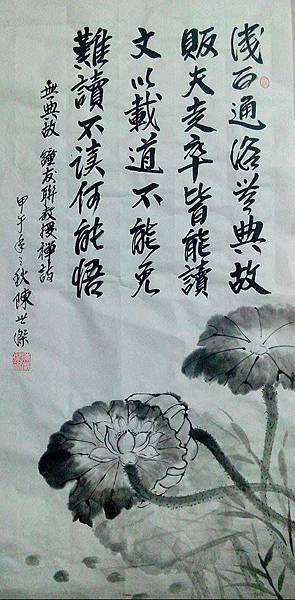 浅而通俗無典故
販夫走卒皆能讀
文以載道不能免
難讀不读何能悟
無典故 鐘友聯教授禪詩
甲午年之秋陳世傑